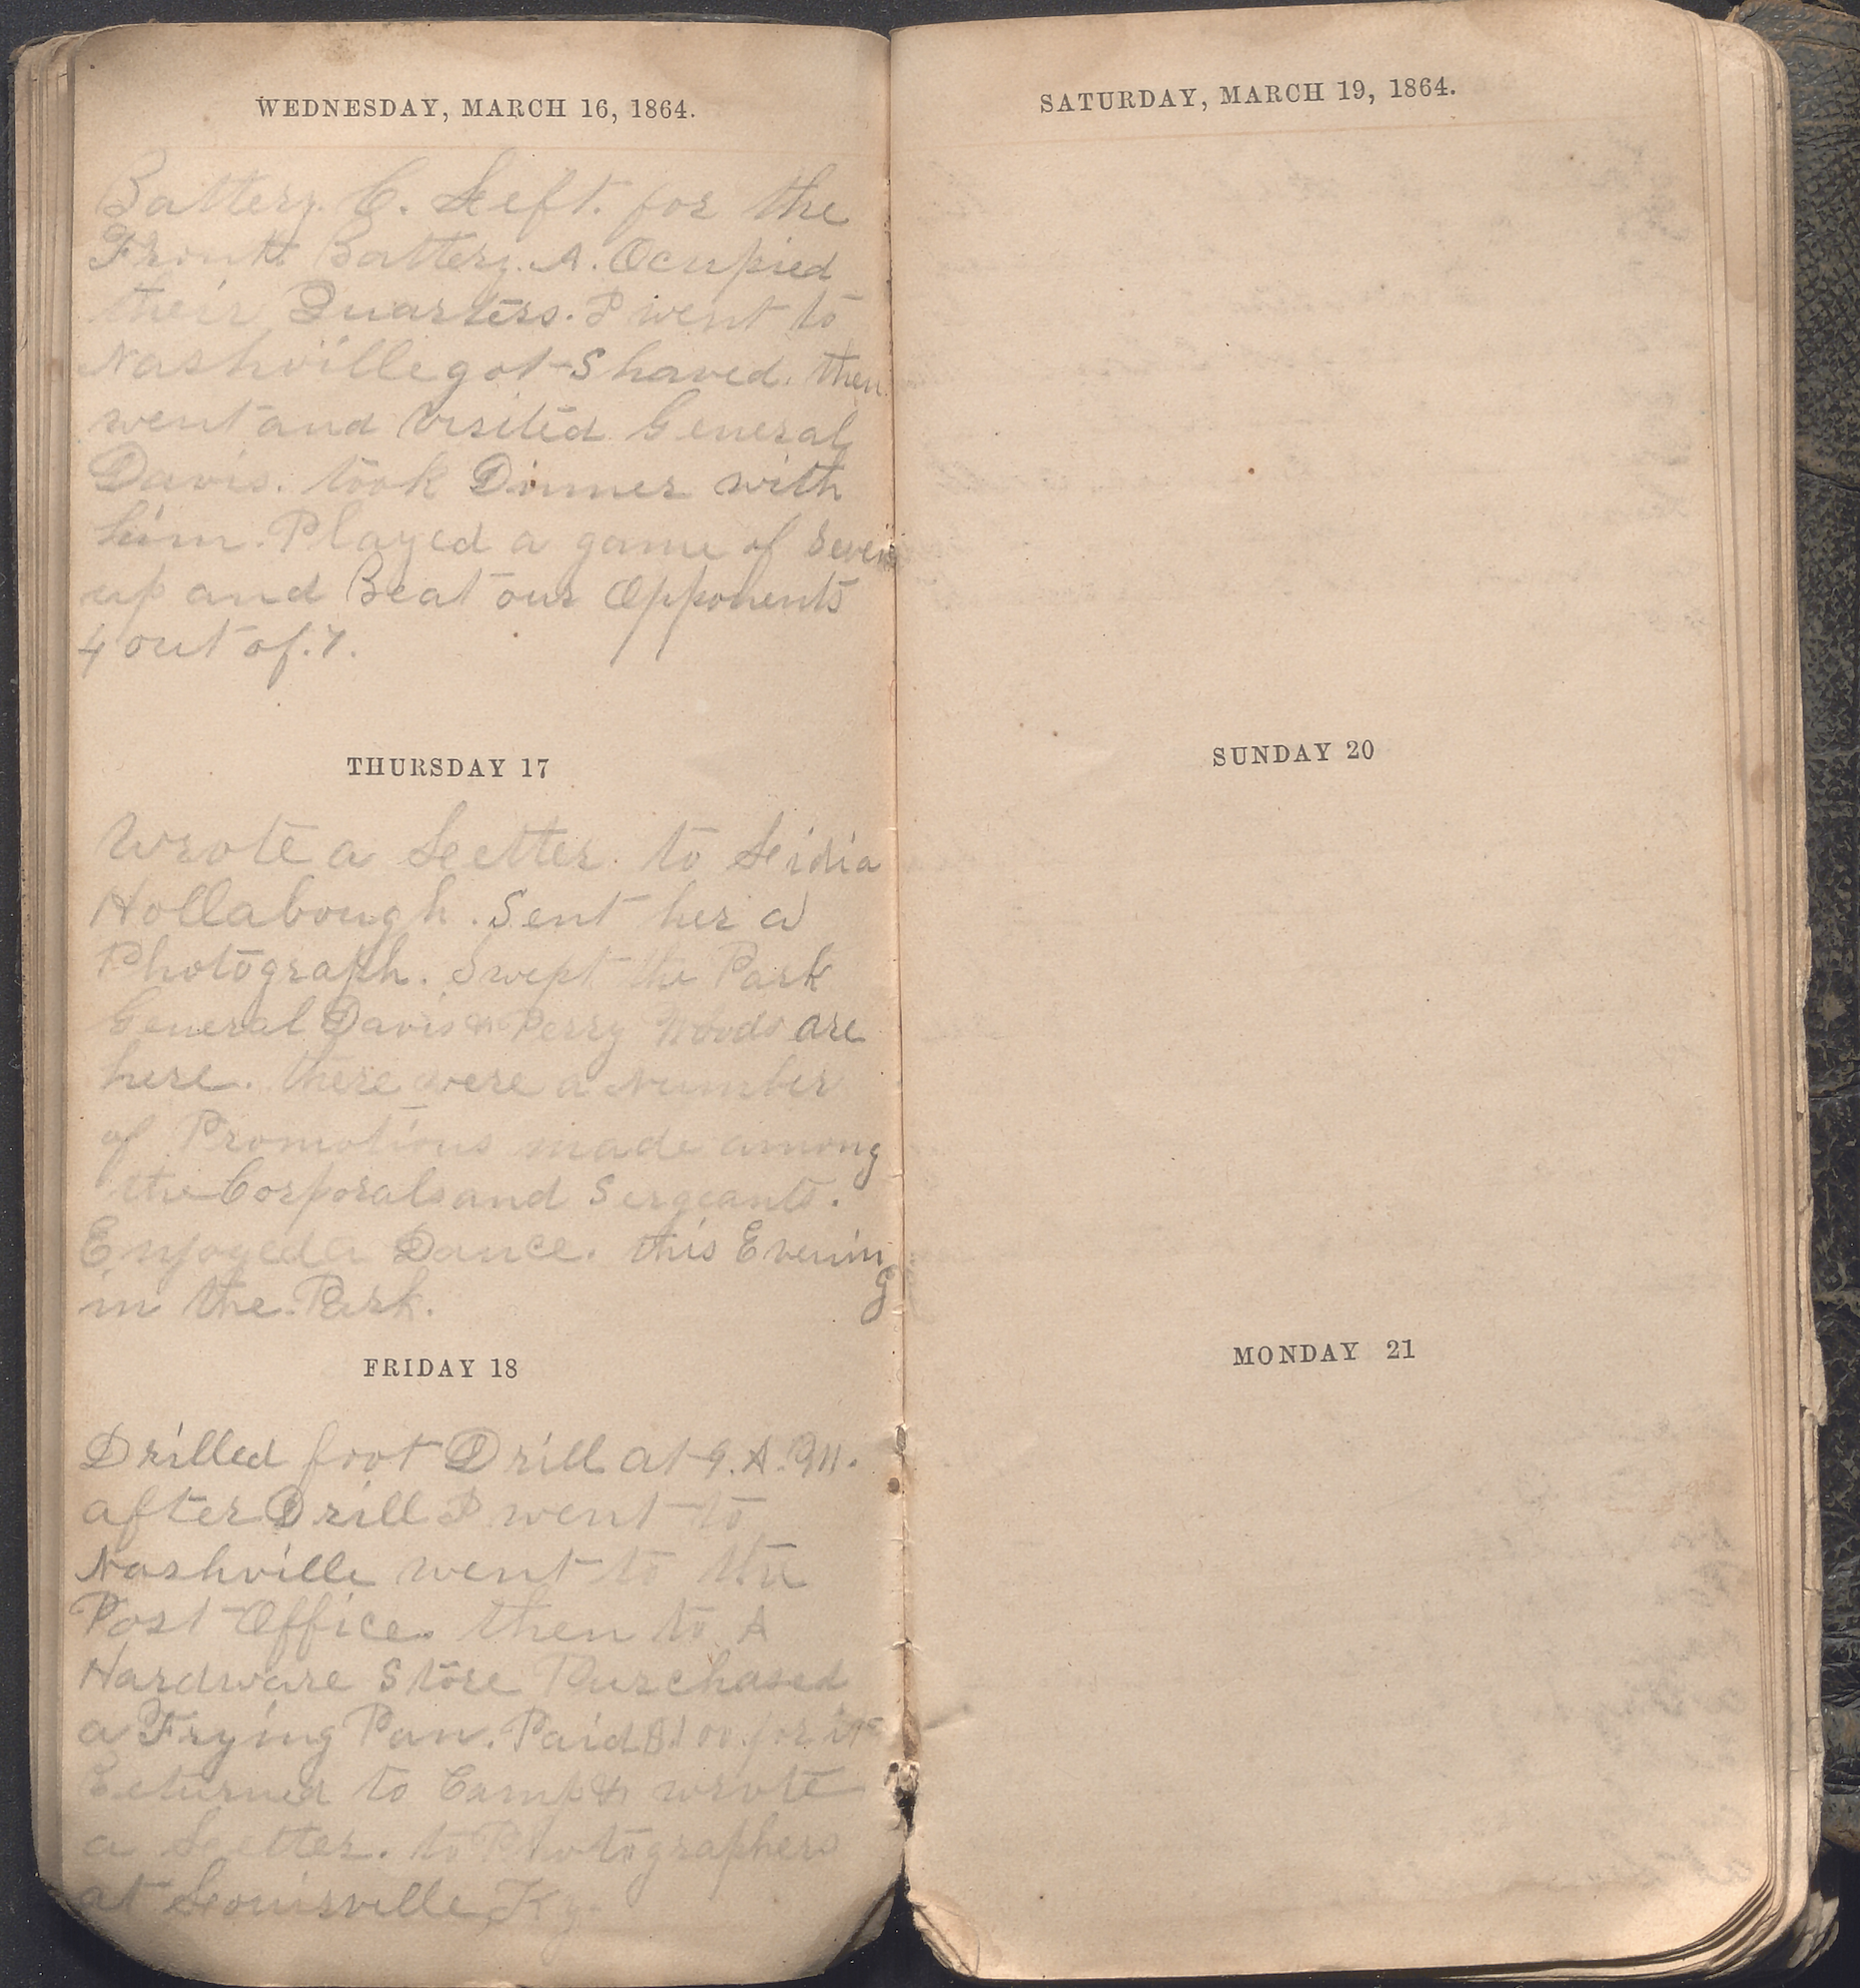 WEDNESDAY, MARCH 16, 1864.
Battery. C. Left. for the
Front Battery. A. Ocupied
their Quarters. I went to
Nashville got Shaved. then
went and Visited General
Davis. took Dinner with
him. Played a game of Seven
up and Beat our Opponents
4 out of. 7.
THURSDAY 17
Wrote a Letter. to Lidia
Hollabough. Sent her a
Photograph. Swept the Park
General Davis & Perry Woods are
here. there were a Number
of Promotions made among
the Corporals and Sergeants.
Enjoyed a Dance. this Evening
in the. Park.
FRIDAY 18
Drilled foot Drill at 9. A. M.
after Drill I went to
Nashville went to the
Post Office. then to A
Hardware Store Purchased
a Frying Pan. Paid $1.00. for it
Returned to Camp & wrote
a Letter. to Photographers
at Louisville Ky.
SATURDAY, MARCH 19, 1864.
SUNDAY 20
MONDAY 21